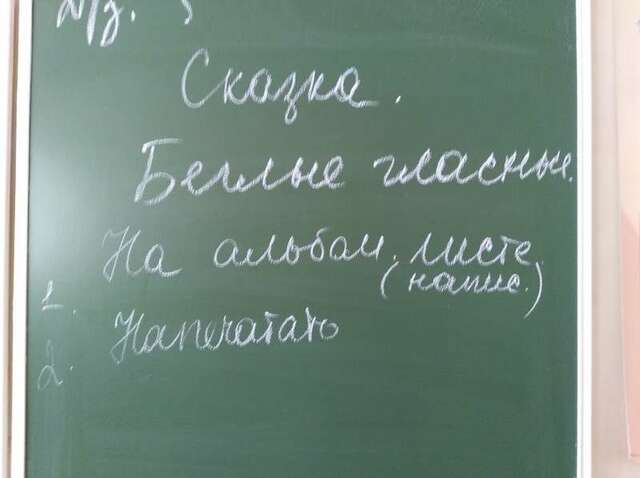 Д/з.
Сказка.
Беглые гласные.
1. На альбом. листе.
(напис.)
2. Напечатать